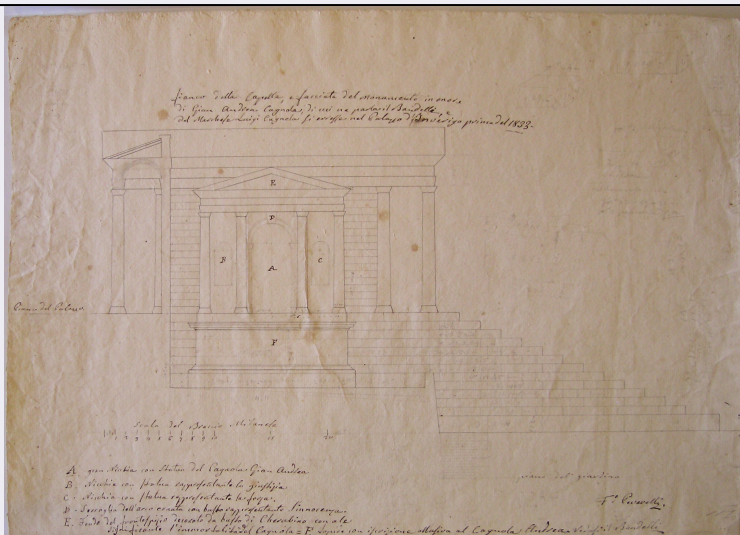 fianco della Capella, e facciata del Monumento in onore
di Gian Andrea Cagnola, di cui ne parla il Bandello
Del Marchese Luigi Cagnola si eresse nel Palazzo d'Inverigo prima del 1833.
E
P
B
A
C
Piano del Palazzo
F
Scala del Braccio Milanese
A. gran Nicchia con Statua del Cagnola Gian Andrea
B. Nicchia con statua rappresentante la Giustizia
C. Nicchia con statua rappresentante la forza.
D. dell'arco ornata con busto rappresentante l'innocenza.
E. del frontespizio busto di Cherubino
l'immortalità del Cagnola F. con iscrizione allusiva al Cagnola Andrea Bandello
piano del giardino